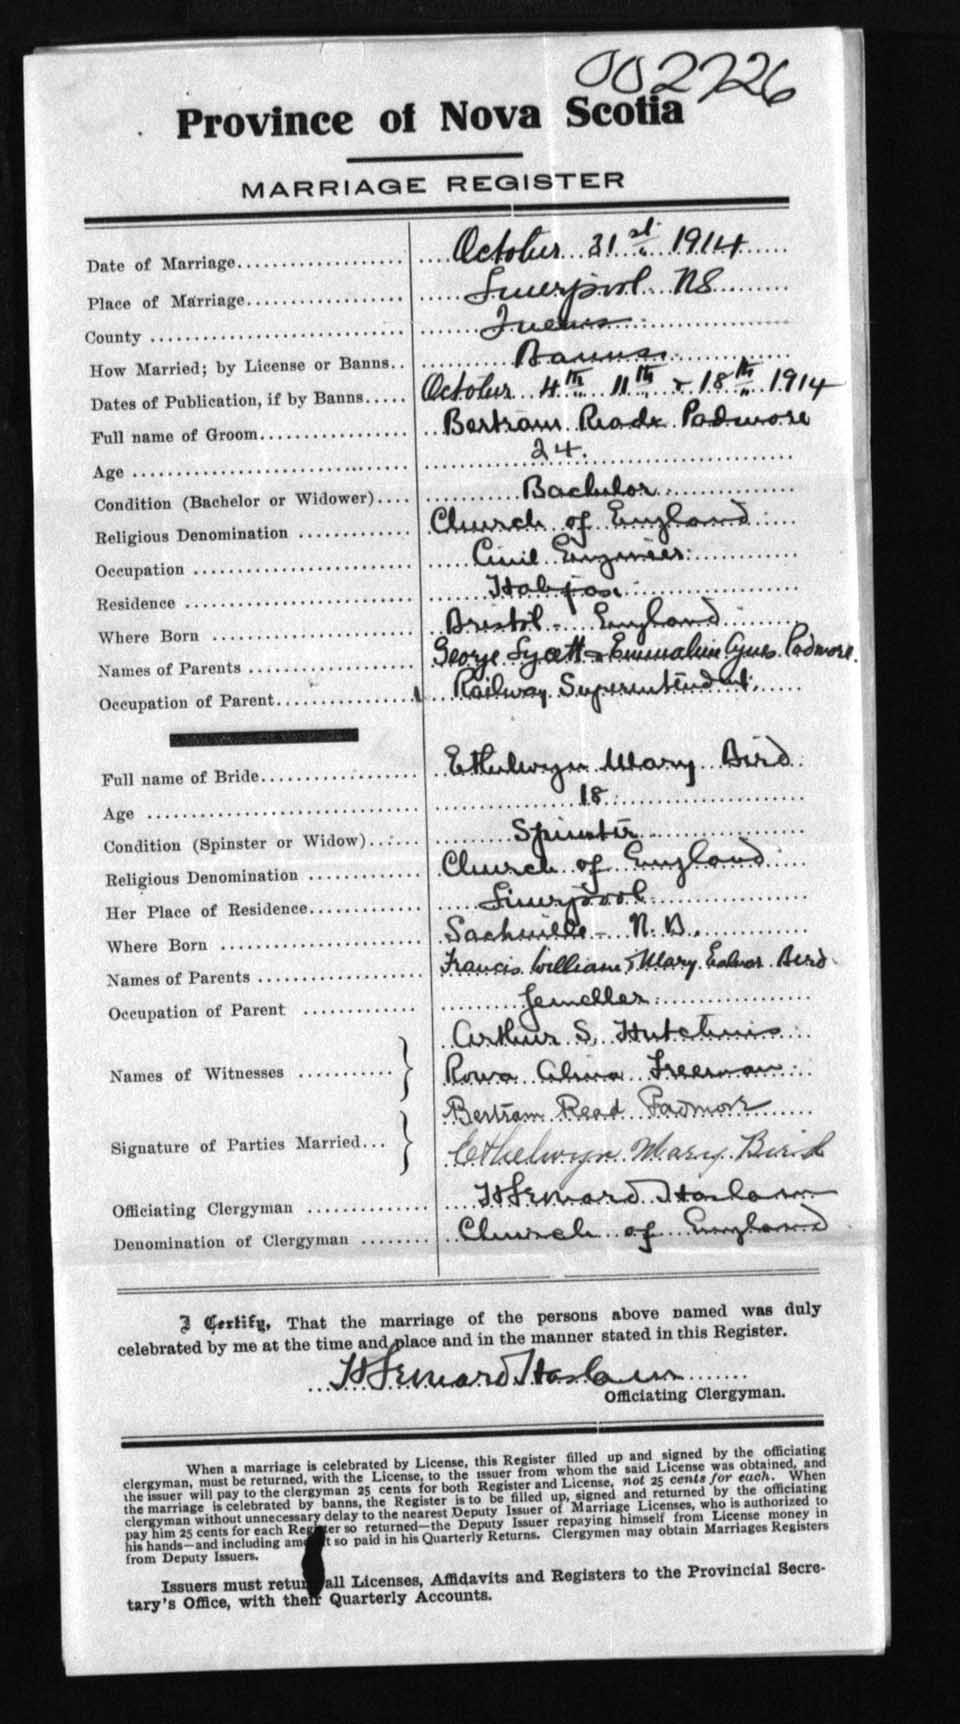 002726
Province of Nova Scotia
MARRIAGE REGISTER
Date of Marriage October 31st 1914
Place of Marriage Liverpool NS
County Queens
How Married; by License or Banns Banns
Dates of Publication, if by Banns October 4th 11th & 18th 1914
Full name of Groom Bertram Reade Padmore
Age 24.
Condition (Bachelor or Widower) Bachelor
Religious Denomination Church of England
Occupation Civil Engineer
Residence Halifax
Where Born Bristol - England
Names of Parents George & Emmaline Agnes Padmore.
Occupation of Parent Railway Superintendent.
Full name of Bride Ethelwyn Mary Bird
Age 18
Condition (Spinster or Widow) Spinster
Religious Denomination Church of England
Her Place of Residence Liverpool
Where Born Sackville - N.B.
Names of Parents Francis William & Mary Bird
Occupation of Parent Jeweller
Arthur S. Hutchins
Names of Witnesses Alma Freeman
Bertram Read Padmore
Signature of Parties Married Ethelwyn Mary Bird
Officiating Clergyman Haslam
Denomination of Clergyman Church of England
I Certify, That the marriage of the persons above named was duly
celebrated by me at the time and place and in the manner stated in this Register.
Haslam
Officiating Clergyman.
When a marriage is celebrated by License, this Register filled up and signed by the officiating
clergyman, must be returned, with the License, to the issuer from whom the said License was obtained, and
the issuer will pay to the clergyman 25 cents for both Register and License, not 25 cents for each. When
the marriage is celebrated by banns, the Register is to be filled up, signed and returned by the officiating
clergyman without unnecessary delay to the nearest Deputy Issuer of Marriage Licenses, who is authorized to
pay him 25 cents for each Register so returned—the Deputy Issuer repaying himself from License money in
his hands—and including amount so paid in his Quarterly Returns. Clergymen may obtain Marriages Registers
from Deputy Issuers.
Issuers must return all Licenses, Affidavits and Registers to the Provincial Secre-
tary's Office, with their Quarterly Accounts.